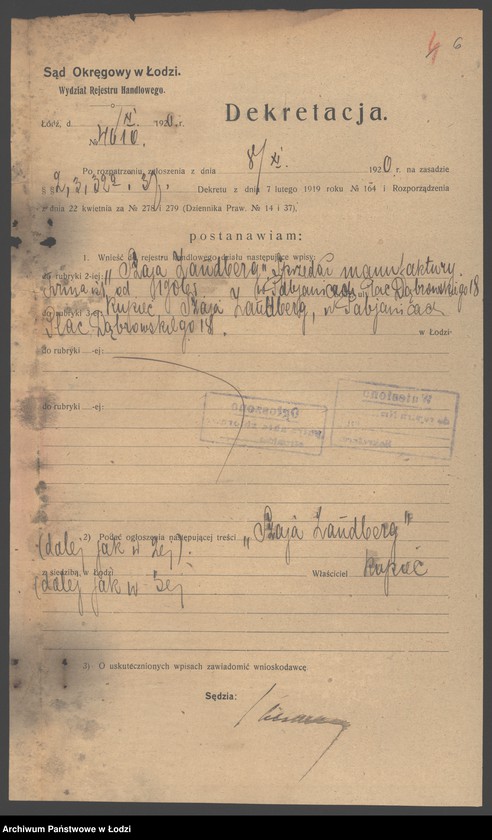 4 6
Sąd Okręgowy w Łodzi.
Wydział Rejestru Handlowego.
Dekretacja.
Łódź, d. /XI 1920, r.
№ 4610.
Po rozpatrzeniu zgłoszenia z dnia 8/XI. 1920 r. na zasadzie
2, 3, 32 Dekretu z dnia 7 lutego 1919 roku № 164 i Rozporządzenia
z dnia 22 kwietnia za № 278 i 279 (Dziennika Praw. № 14 i 37),
postanawiam:
1. Wnieść do rejestru handlowego działu następujące wpisy:
do rubryki 2-iej: „Szaja Zandberg”, sprzedaż manufaktury.
od w Pabjanicach Plac Dąbrowskiego 18
do rubryki 3-ej: Kupiec Szaja Zandberg, w Pabjanicach
Plac Dąbrowskiego 18. w Łodzi-
do rubryki -ej:
do rubryki -ej:
Ogłoszono
Wniesiono
2) Podać ogłoszenia następującej treści „Szaja Zandberg”
(dalej jak w 2ej).
z siedzibą w Łodzi Właściciel Kupiec
(dalej jak w 3ej
3) O uskutecznionych wpisach zawiadomić wnioskodawcę
Sędzia:
Archiwum Państwowe w Łodzi